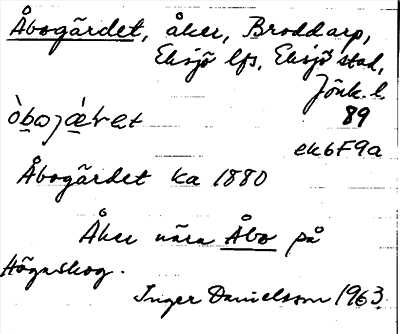 Åbogärdet, åker, Broddarp,
Eksjö lfs, Eksjö stad,
Jönk. l.
89
òbojæ̀ret
ek6F9a
Åbogärdet ka 1880
Åker nära Åbo på
Högaskog.
Inger Danielsson 1963.